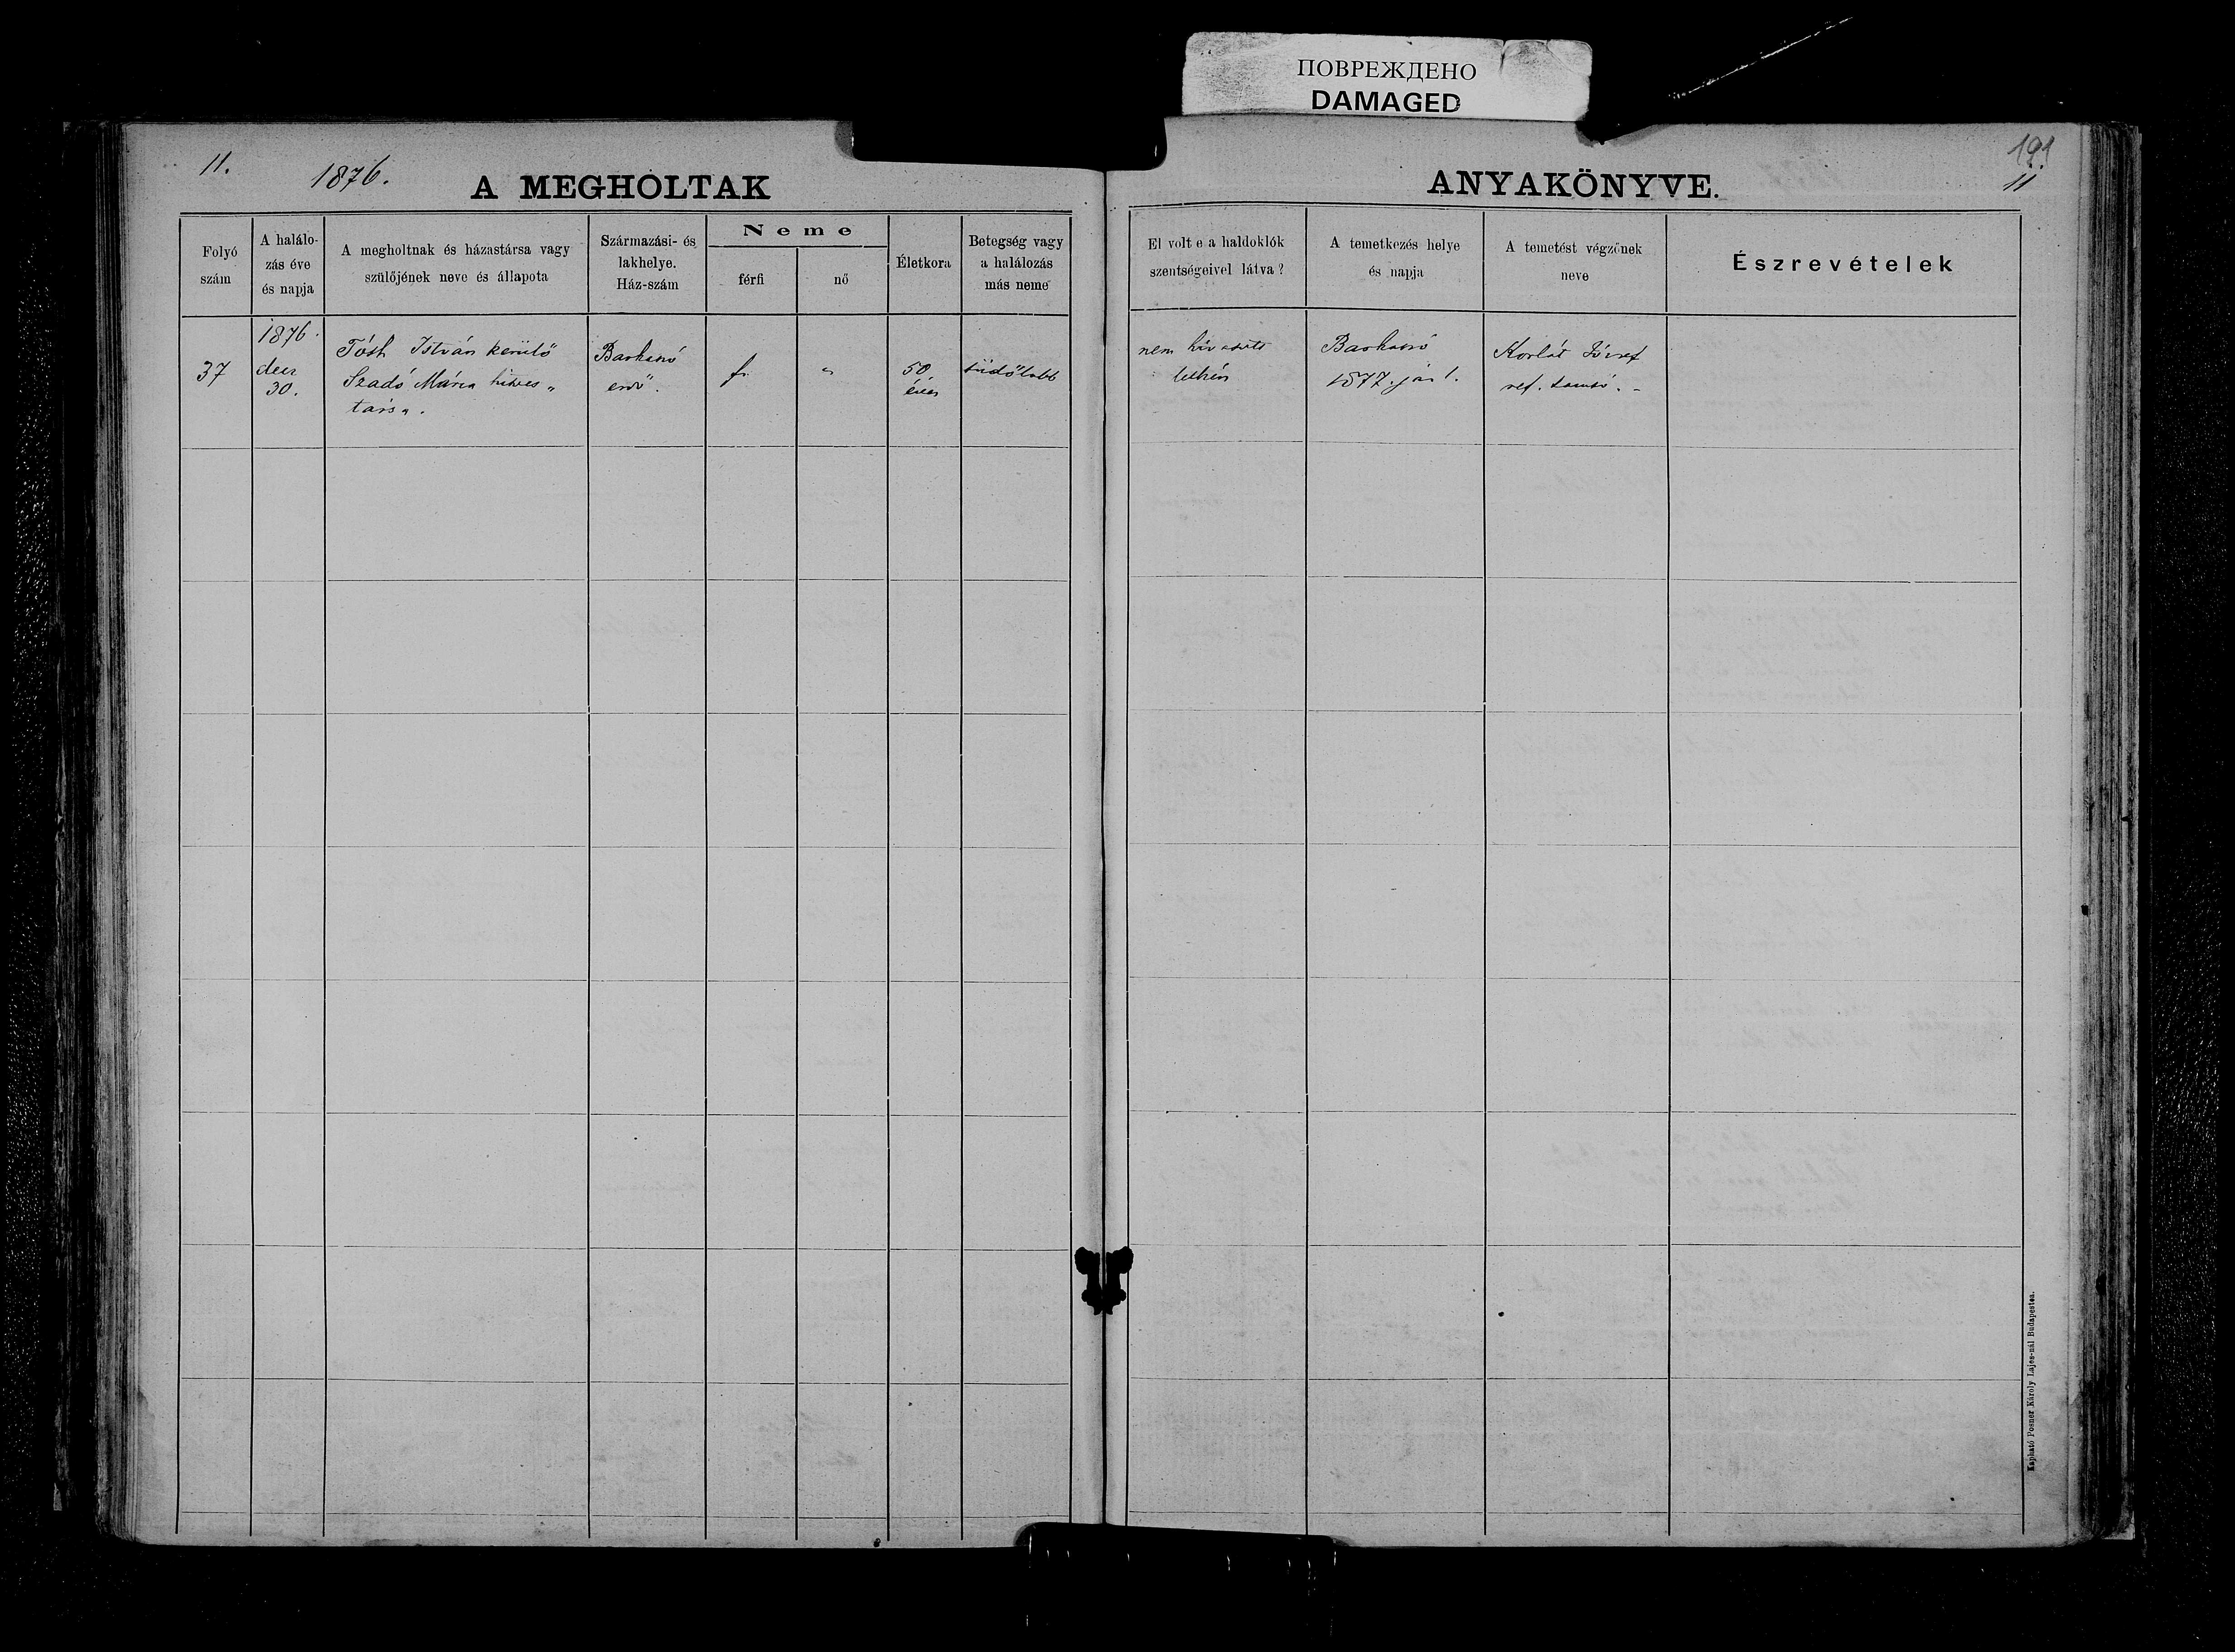 ПОВРЕЖДЕНО
DAMAGED
11.
1876.
A MEGHOLTAK
ANYAKÖNYVE.
191
11
Folyó
szám
A halálo-
zás éve
és napja
A megholtnak és házastársa vagy
szülőjének neve és állapota
Származási- és
lakhelye.
Ház-szám
Neme
férfi
nő
Életkora
Betegség vagy
a halálozás
más neme
El volt e a haldoklók
szentségeivel látva?
A temetkezés helye
és napja
A temetést végzőnek
neve
Észrevételek
37
1876.
decz
30.
Tóth István kerülő
Szadó Mária hitves „
társa.
Barkaszó
erdő.
f.
"
50
éves
tüdőlobb
nem
Barkaszó
1877. jan 1.
Korlát József
ref.
Kapható Posner Károly Lajos-nál Budapesten.